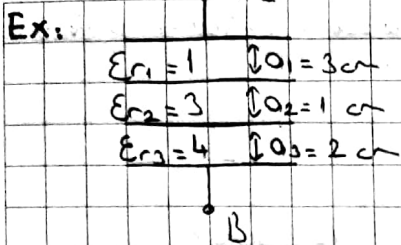 Ex:
εr1 = 1 ↕a1 = 3 cm
εr2 = 3 ↕a2 = 1 cm
εr3 = 4 ↕a3 = 2 cm
B